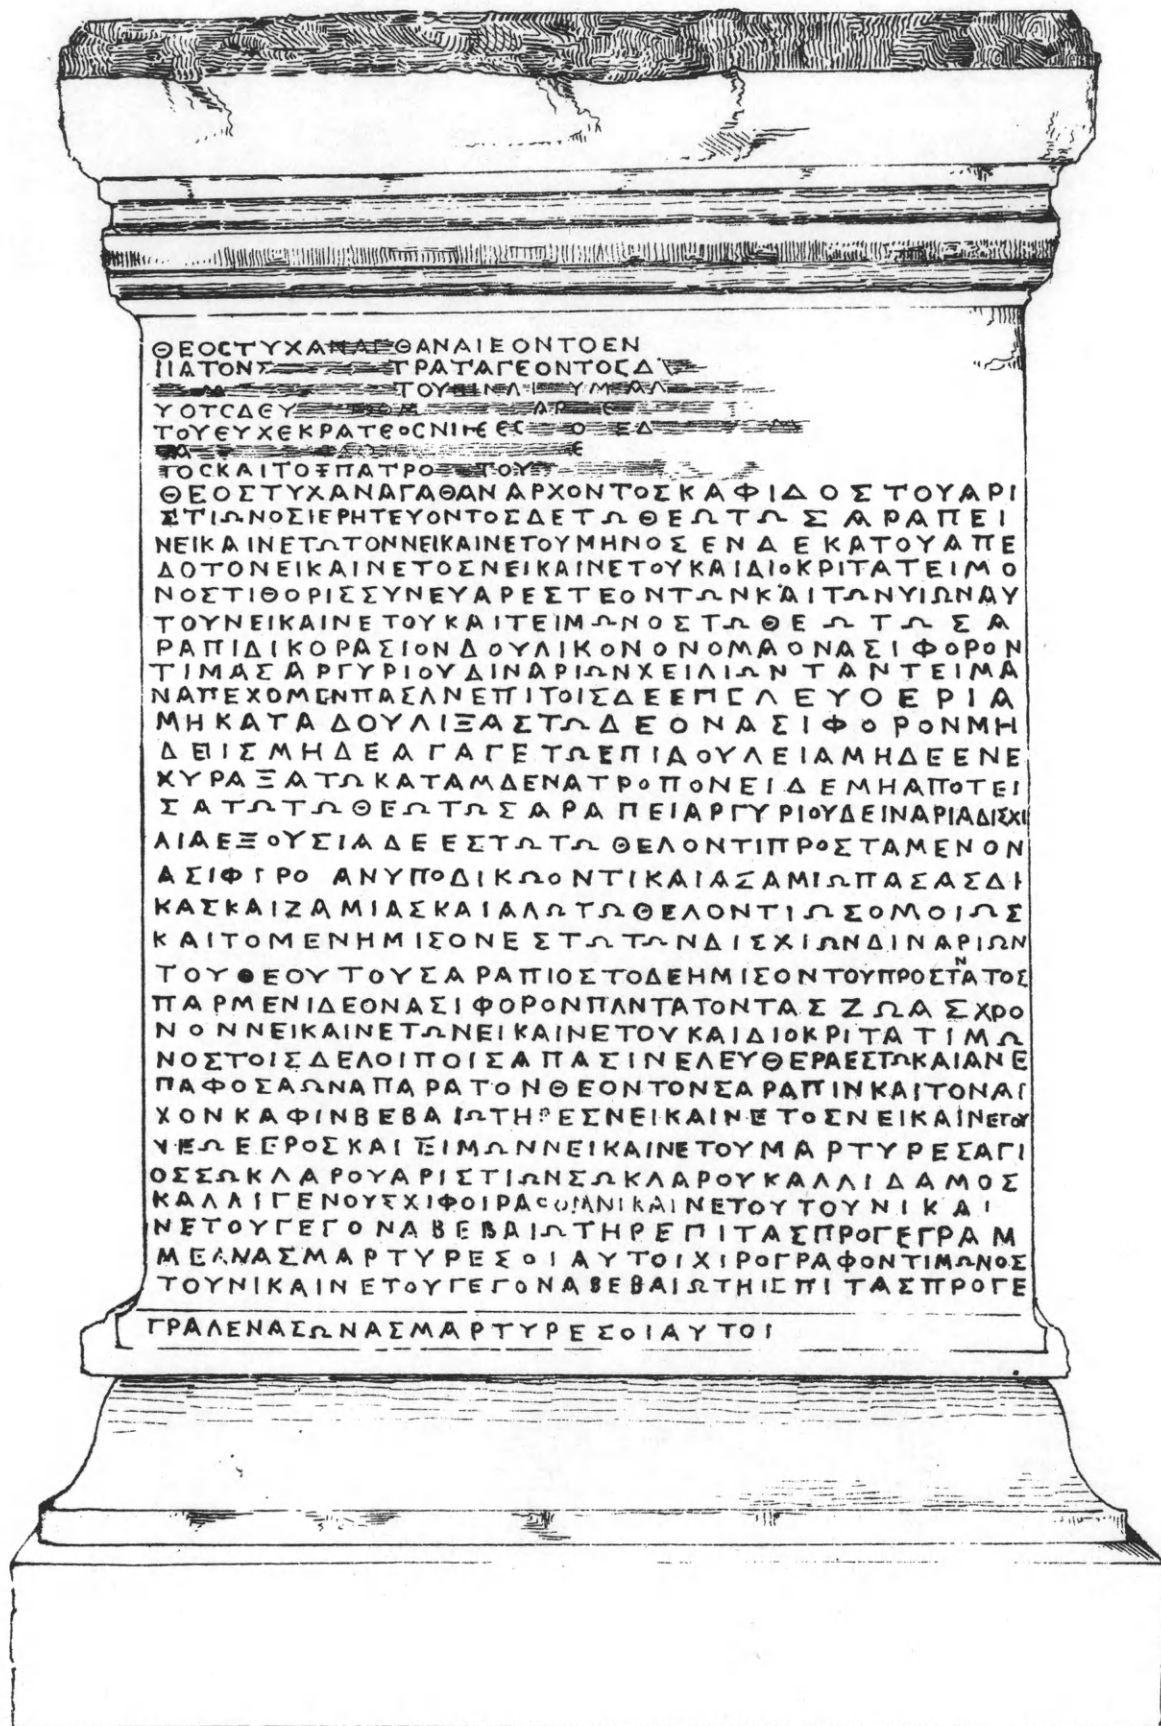 ΘΕΟСΤΥΧΑΝΑΓΘΑΝΑΙΕΟΝΤΟΕΝ
ΠΑΤΟΝΣ ΤΡΑΤΑΓΕΟΝΤΟСΔ
ΤΟΥ
ΥΟΤСΔΕΥ
ΤΟΥЄΥΧЄΚΡΑΤЄΟС
ΤΟСΚΑΙΤΟΞΠΑΤΡΟ ΤΟΥ
ΘΕΟΣΤΥΧΑΝΑΓΑΘΑΝΑΡΧΟΝΤΟΣΚΑΦΙΔΟΣΤΟΥΑΡΙ
ΣΤΙΩΝΟΣΙΕΡΗΤΕΥΟΝΤΟΣΔΕΤΩΘΕΩΤΩΣΑΡΑΠΕΙ
ΝΕΙΚΑΙΝΕΤΩΤΟΝΝΕΙΚΑΙΝΕΤΟΥΜΗΝΟΣΕΝΔΕΚΑΤΟΥΑΠΕ
ΔΟΤΟΝΕΙΚΑΙΝΕΤΟΣΝΕΙΚΑΙΝΕΤΟΥΚΑΙΔΙΟΚΡΙΤΑΤΕΙΜΟ
ΝΟΣΤΙΘΟΡΙΣΣΥΝΕΥΑΡΕΣΤΕΟΝΤΩΝΚΑΙΤΩΝΥΙΩΝΑΥ
ΤΟΥΝΕΙΚΑΙΝΕΤΟΥΚΑΙΤΕΙΜΩΝΟΣΤΩΘΕΩΤΩΣΑ
ΡΑΠΙΔΙΚΟΡΑΣΙΟΝΔΟΥΛΙΚΟΝΟΝΟΜΑΟΝΑΣΙΦΟΡΟΝ
ΤΙΜΑΣΑΡΓΥΡΙΟΥΔΙΝΑΡΙΩΝΧΕΙΛΙΩΝΤΑΝΤΕΙΜΑ
ΝΑΠΕΧΟΜΕΝΠΑΣΛΝΕΠΙΤΟΙΣΔΕΕΠΕΛΕΥΟΕΡΙΑ
ΜΗΚΑΤΑΔΟΥΛΙΞΑΣΤΩΔΕΟΝΑΣΙΦΟΡΟΝΜΗ
ΔΕΙΣΜΗΔΕΑΓΑΓΕΤΩΕΠΙΔΟΥΛΕΙΑΜΗΔΕΕΝΕ
ΧΥΡΑΞΑΤΩΚΑΤΑΜΔΕΝΑΤΡΟΠΟΝΕΙΔΕΜΗΑΠΟΤΕΙ
ΣΑΤΩΤΩΘΕΩΤΩΣΑΡΑΠΕΙΑΡΓΥΡΙΟΥΔΕΙΝΑΡΙΑΔΙΣΧΙ
ΛΙΑΕΞΟΥΣΙΑΔΕΕΣΤΩΤΩΘΕΛΟΝΤΙΠΡΟΣΤΑΜΕΝΟΝ
ΑΣΙΦΓΡΟ ΑΝΥΠΟΔΙΚΩΟΝΤΙΚΑΙΑΣΑΜΙΩΠΑΣΑΣΔΙ
ΚΑΣΚΑΙΖΑΜΙΑΣΚΑΙΑΛΩΤΩΘΕΛΟΝΤΙΩΣΟΜΟΙΩΣ
ΚΑΙΤΟΜΕΝΗΜΙΣΟΝΕΣΤΩΤΩΝΔΙΣΧΙΩΝΔΙΝΑΡΙΩΝ
ΤΟΥΘΕΟΥΤΟΥΣΑΡΑΠΙΟΣΤΟΔΕΗΜΙΣΟΝΤΟΥΠΡΟΣΤΑΝΤΟΣ
ΠΑΡΜΕΝΙΔΕΟΝΑΣΙΦΟΡΟΝΠΛΝΤΑΤΟΝΤΑΣΖΩΑΣΧΡΟ
ΝΟΝΝΕΙΚΑΙΝΕΤΩΝΕΙΚΑΙΝΕΤΟΥΚΑΙΔΙΟΚΡΙΤΑΤΙΜΩ
ΝΟΣΤΟΙΣΔΕΛΟΙΠΟΙΣΑΠΑΣΙΝΕΛΕΥΘΕΡΑΕΣΤΩΚΑΙΑΝΕ
ΠΑΦΟΣΑΩΝΑΠΑΡΑΤΟΝΘΕΟΝΤΟΝΣΑΡΑΠΙΝΚΑΙΤΟΝΑΙ
ΧΟΝΚΑΦΙΝΒΕΒΑΙΩΤΗΡΕΣΝΕΙΚΑΙΝΕΤΟΣΝΕΙΚΑΙΝΕΤΟΥ
ΥΕΩΕΕΡΟΣΚΑΙΤΕΙΜΩΝΝΕΙΚΑΙΝΕΤΟΥΜΑΡΤΥΡΕΣΑΓΙ
ΟΣΣΩΚΛΑΡΟΥΑΡΙΣΤΙΩΝΣΩΚΛΑΡΟΥΚΑΛΛΙΔΑΜΟΣ
ΚΑΛΛΙΓΕΝΟΥΣΧΙΦΟΙΡΑСΩΙΑΝΙΚΑΙΝΕΤΟΥΤΟΥΝΙΚΑΙ
ΝΕΤΟΥΓΕΓΟΝΑΒΕΒΑΙΩΤΗΡΕΠΙΤΑΣΠΡΟΓΕΓΡΑΜ
ΜΕΛΝΑΣΜΑΡΤΥΡΕΣΟΙΑΥΤΟΙΧΙΡΟΓΡΑΦΟΝΤΙΜΩΝΟΣ
ΤΟΥΝΙΚΑΙΝΕΤΟΥΓΕΓΟΝΑΒΕΒΑΙΩΤΗΙΕΠΙΤΑΣΠΡΟΓΕ
ΓΡΑΛΕΝΑΣΩΝΑΣΜΑΡΤΥΡΕΣΟΙΑΥΤΟΙ